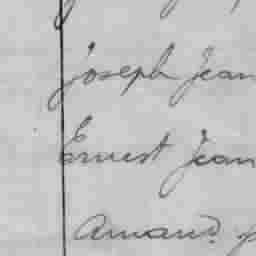 Joseph Jean
Ernest Jean
Amand.